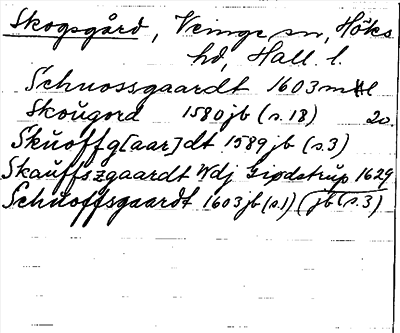 Skogsgård, Veinge sn, Höks
hd, Hall. l.
Schuossgaardt 1603 mtl
Skougord 1580 jb (s. 18) 20.
Skuoffg[aar]dt 1589 jb (s. 3)
Skauffszgaardt Wdj Giødstrup 1629
Schuoffsgaardt 1603 jb (s. 1) (jb (s. 3)